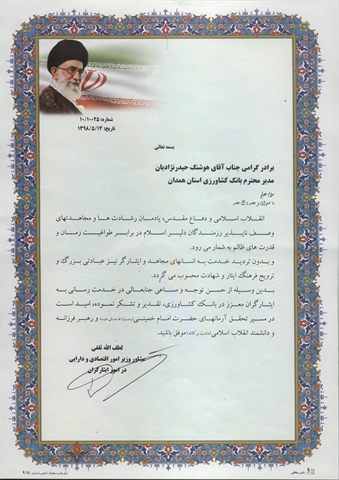 شماره: ۱۰/۱۰۰۲۵
تاریخ: ۱۳۹۸/۵/۱۴
بسمه تعالی
برادر گرامی جناب آقای هوشنگ حیدرنژادیان
مدیر محترم بانک کشاورزی استان همدان
انقلاب اسلامی و دفاع مقدس، یادمان رشادت ها و مجاهدتهای
وصف ناپذیر رزمندگان دلیر اسلام در برابر طواغیت زمان و
قدرت های ظالم به شمار می رود.
بدون تردید خدمت به انسانهای مجاهد و ایثارگر نیز عبادتی بزرگ و
ترویج فرهنگ ایثار و شهادت محسوب می گردد.
بدین وسیله از حسن توجه و مساعی جنابعالی در خدمت رسانی به
ایثارگران معزز در بانک کشاورزی، تقدیر و تشکر نموده، امید است
در مسیر تحقق آرمانهای حضرت امام خمینی و رهبر فرزانه
و دانشمند انقلاب اسلامی موفق باشید.
لطف الله ثقفی
مشاور وزیر امور اقتصادی و دارایی
در امور ایثارگران